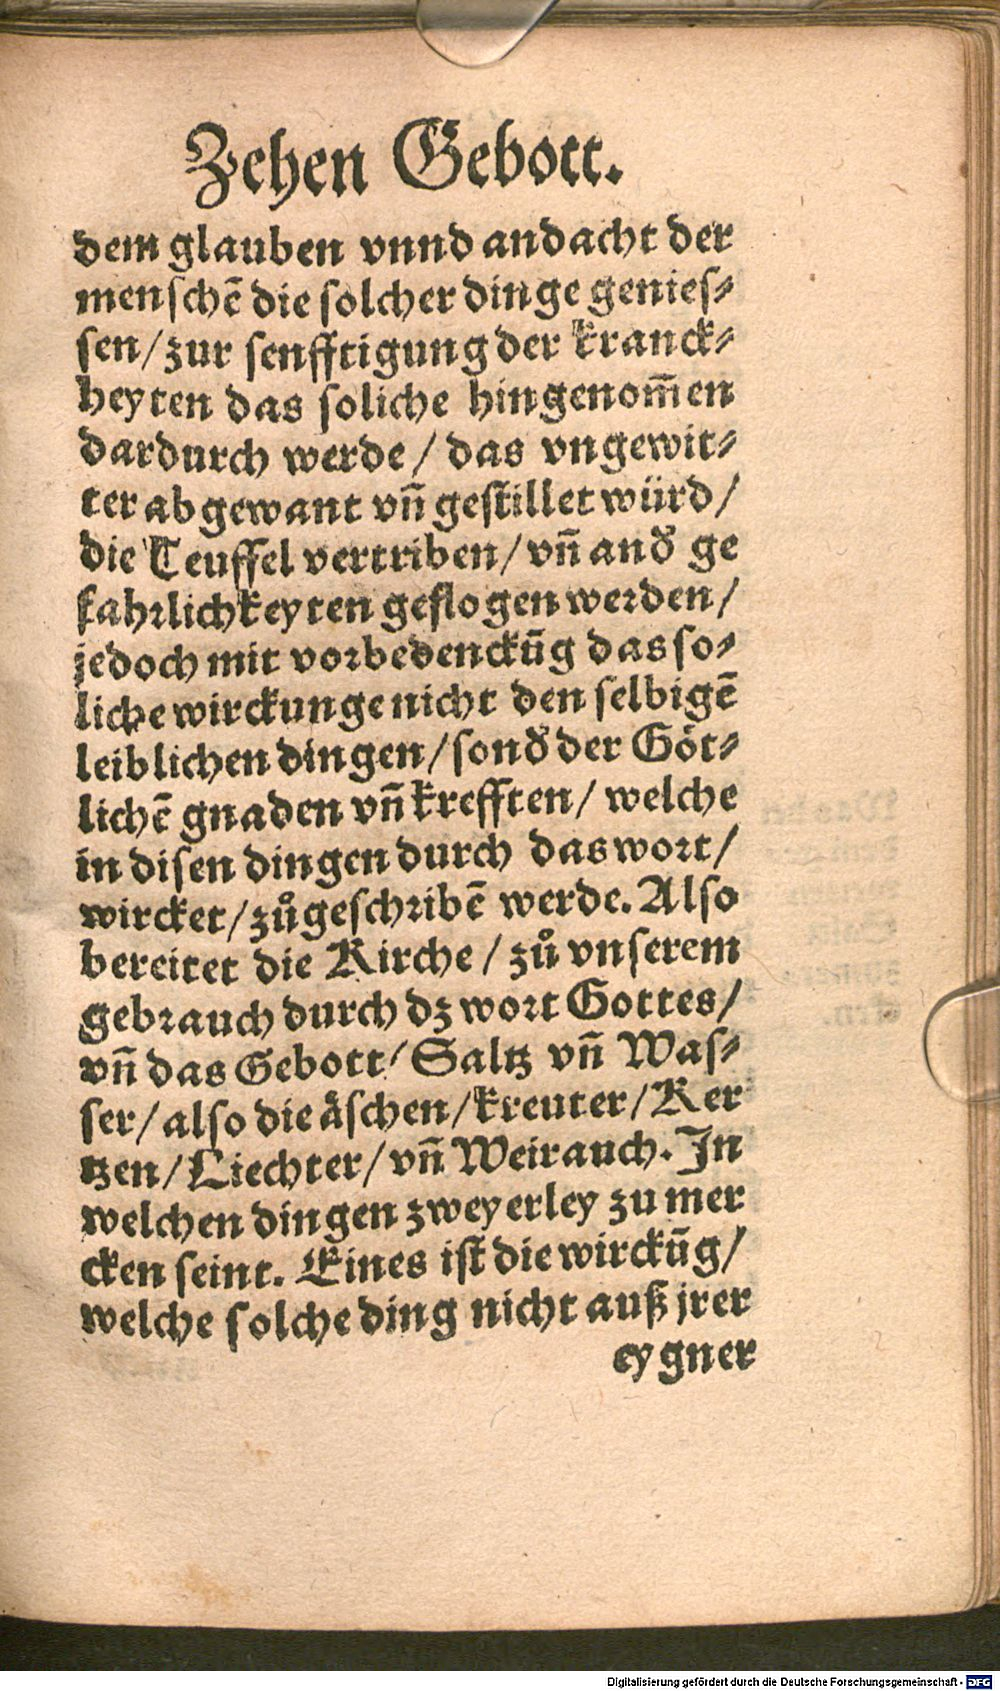 Zehen Gebott.
dem glauben vnnd andacht der
menschē die solcher dinge genies⸗
sen/zur senfftigung der kranck⸗
heyten das soliche hingenom̄en
dardurch werde/ das vngewit⸗
ter abgewant vn̄ gestillet würd/
die Teuffel vertriben/vn̄ and̛ ge
fahrlichkeyten geflogen werden/
jedoch mit vorbedenckūg das so⸗
liche wirckunge nicht den selbigē
leiblichen dingen/sond̛ der Göt⸗
lichē gnaden vn̄ krefften/ welche
in disen dingen durch das wort/
wircket/zůgeschribē werde. Also
bereitet die Kirche/zů vnserem
gebrauch durch dz wort Gottes/
vn̄ das Gebott/Saltz vn̄ Was⸗
ser/also die äschen/kreuter/Ker
tzen/Liechter/vn̄ Weirauch. In
welchen dingen zweyerley zu mer
cken seint. Eines ist die wirckūg/
welche solche ding nicht auß jrer
eygner
Digitalisierung gefördert durch die Deutsche Forschungsgemeinschaft - DFG